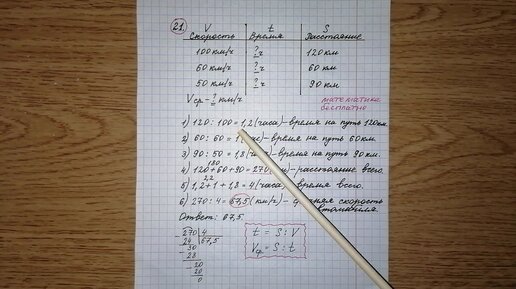 21
V t S
Скорость Время Расстояние
100 км/ч ? ч 120 км
60 км/ч ? ч 60 км
50 км/ч ? ч 90 км
Vср - ? км/ч
математика
бесплатно
1) 120 : 100 = 1,2 (часа) - время на путь 120 км.
2) 60 : 60 = 1 - время на путь 60 км.
3) 90 : 50 = 1,8 (час) - время на путь 90 км.
180
4) 120 + 60 + 90 = 270 - расстояние всего.
2,2
5) 1,2 + 1 + 1,8 = 4 (часа) время всего.
6) 270 : 4 = 67,5 (км/ч) - скорость
автомобиля.
Ответ: 67,5
270 4
24 67,5
30
28
20
20
0
t = S : V
Vср = S : t